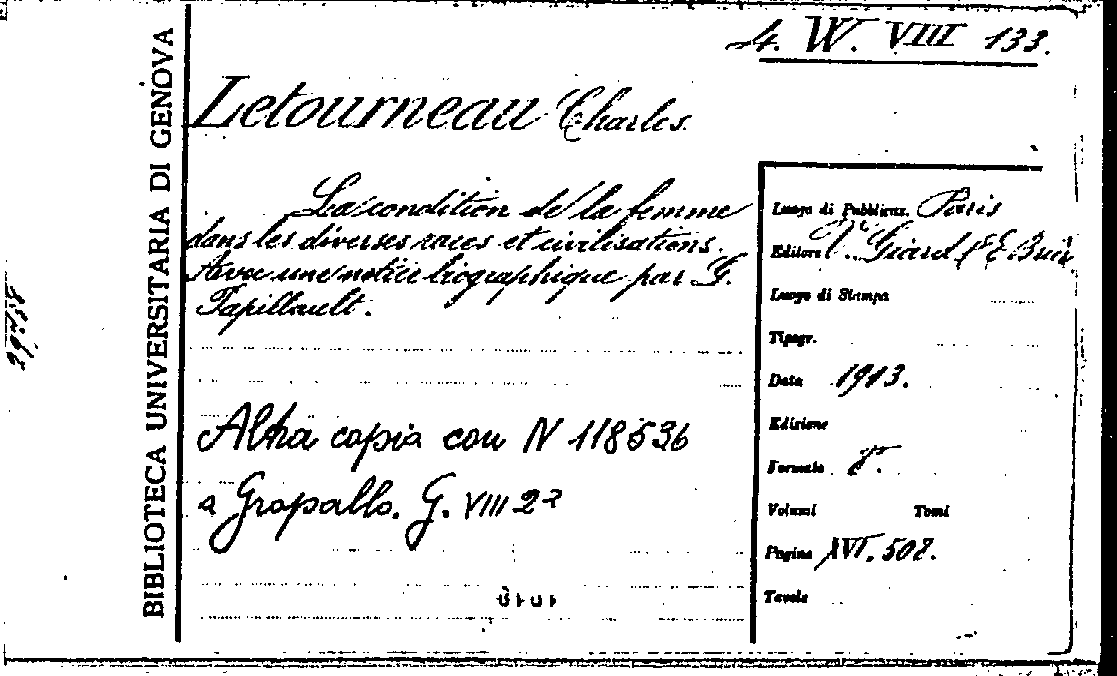 4. W. VIII 133.
BIBLIOTECA UNIVERSITARIA DI GENOVA
Letourneau Charles
La condition de la femme
dans les diverses races et civilisations.
Avec une notice biographique par G.
Papillault.
Altra copia con N 118536
a Gropallo. G. VIII 2
Luogo di Pubblicaz. Paris
Editore V. Giard & E. Brièr
Luogo di Stampa
Tipogr.
Data 1913.
Edizione
Formato 8°.
Volumi Tomi
Pagine XVI. 508.
Tavole